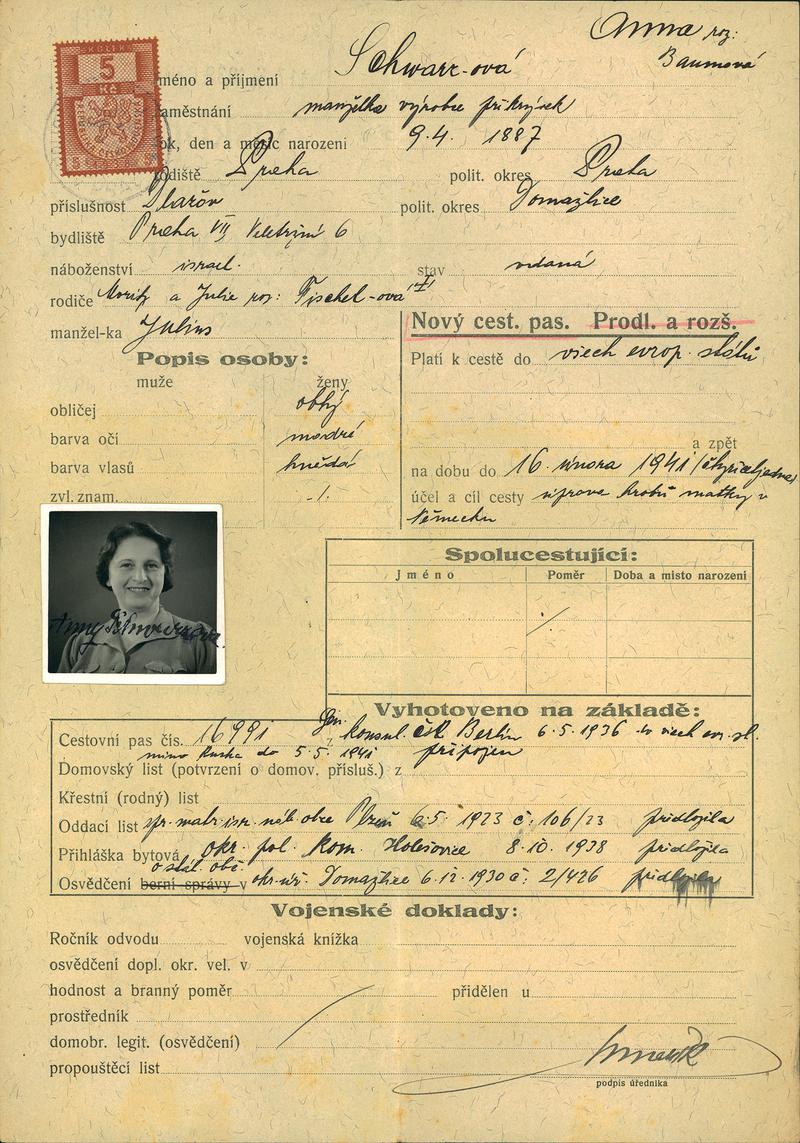 Anna roz:
Baumová
KOLEK
5
Kč
Jméno a příjmení Schwarz-ová
zaměstnání manželka výrobce přikrývek
rok, den a měsíc narození 9.4. 1887
rodiště Praha polit. okres Praha
příslušnost polit. okres Domažlice
bydliště Praha VII Veletržní 6
náboženství israel. stav vdaná
rodiče Moritz a Julie roz: Fischel-ová
manžel-ka Julius
Nový cest. pas. Prodl. a rozš.
Popis osoby:
Platí k cestě do všech evrop. států
muže ženy
obličej oblý
barva očí modré
barva vlasů hnědá
zvl. znam. -/.
a zpět
na dobu do 16. února 1941 /čtyřicetjedna/
účel a cíl cesty úprava hrobů matky v
Německu
Spolucestující:
Jméno Poměr Doba a misto narození
Vyhotoveno na základě:
Cestovní pas čís. 16991 z Gen. konsul. čsl. Berlin 6.5.1936 vš. evr. st.
mimo Ruska do 5.5.1941 připojen
Domovský list (potvrzení o domov. přísluš.) z
Křestní (rodný) list
Oddací list spr. matr. isr. náb. obce Plzeň 6.5.1923 č: 106/23 předložila
Přihláška bytová okr. pol. kom. Holešovice 8.10.1938 předložila
o stát. obč.
Osvědčení berní správy v okr. úř. Domažlice 6.12.1930 č: 2/426 předložila
Vojenské doklady:
Ročník odvodu vojenská knížka
osvědčení dopl. okr. vel. v
hodnost a branný poměr přidělen u
prostředník
domobr. legit. (osvědčení)
propouštěcí list
podpis úředníka